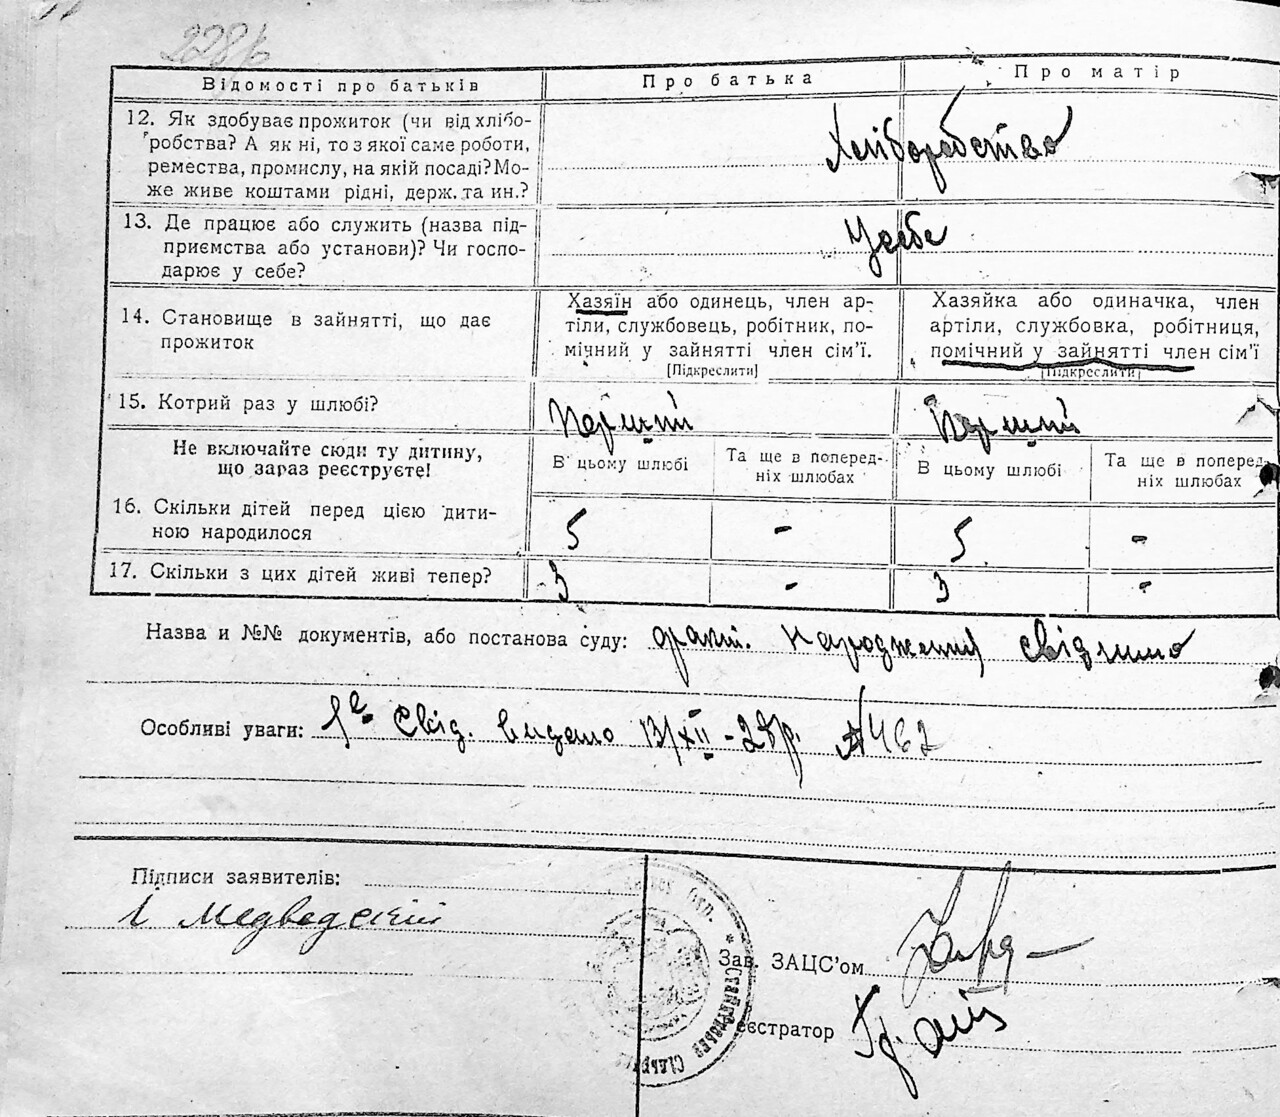 Відомості про батьків
Про батька
Про матір
12. Як здобуває прожиток (чи від хлібо-
робства? А як ні, то з якої саме роботи,
ремества, промислу, на якій посаді? Мо-
же живе коштами рідні, держ. та ин.?
Хліборобство
13. Де працює або служить (назва під-
приємства або установи)? Чи госпо-
дарює у себе?
У себе
14. Становище в зайнятті, що дає
прожиток
Хазяїн або одинець, член ар-
тіли, службовець, робітник, по-
мічний у зайнятті член сім'ї.
[Підкреслити]
Хазяйка або одиначка, член
артіли, службовка, робітниця,
помічний у зайнятті член сім'ї
[Підкреслити]
15. Котрий раз у шлюбі?
Перший
Перший
Не включайте сюди ту дитину,
що зараз реєструєте!
В цьому шлюбі
Та ще в поперед-
ніх шлюбах
В цьому шлюбі
Та ще в поперед-
ніх шлюбах
16. Скільки дітей перед цією дити-
ною народилося
5 - 5 -
17. Скільки з цих дітей живі тепер?
3 - 3 -
Назва и №№ документів, або постанова суду: факт. народження свідчимо
Особливі уваги: Свід. видано 13/XII - 29р. № 467
Підписи заявителів:
Медведский
Зав. ЗАЦС'ом
реєстратор